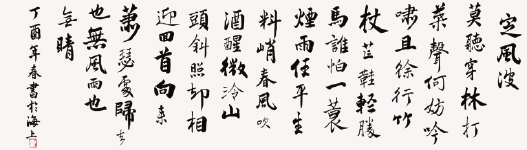 定風波
莫聽穿林打
葉聲何妨吟
嘯且徐行竹
杖芒鞋輕勝
馬誰怕一蓑
煙雨任平生
料峭春風吹
酒醒微冷山
頭斜照却相
迎回首向来
蕭瑟處歸去
也無風雨也
無晴
丁酉年春書於海上